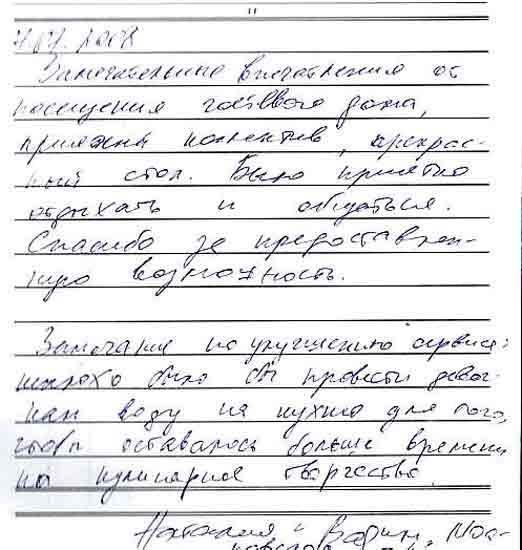 "
Замечательные впечатления от
посещения гостевого дома,
приятный коллектив, прекрас-
ный стол. Было приятно
отдыхать и общаться.
Спасибо за предоставлен-
ную возможность.
Замечание по улучшению сервиса:
неплохо было бы провести девоч-
кам воду на кухню для того,
чтобы оставалось больше времени
на кулинарное творчество.
Наталия и Вадим, Мос-